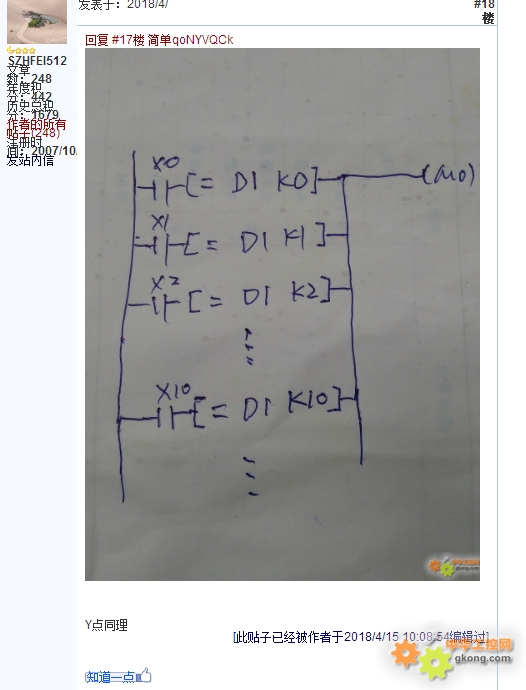 发表于：2018/4/
#18
楼
回复 #17楼 简单qoNYVQCk
SZHFEI512
文章
数：248
年度积
分：442
历史总积
分：1679
作者的所有
帖子(248)
注册时
间：2007/10
发站内信
X0 [= D1 K0] (M0)
X1 [= D1 K1]
X2 [= D1 K2]
X10 [= D1 K10]
gkong.com
Y点同理
[此贴子已经被作者于2018/4/15 10:08:54编辑过]
中华工控网
gkong.com
知道一点